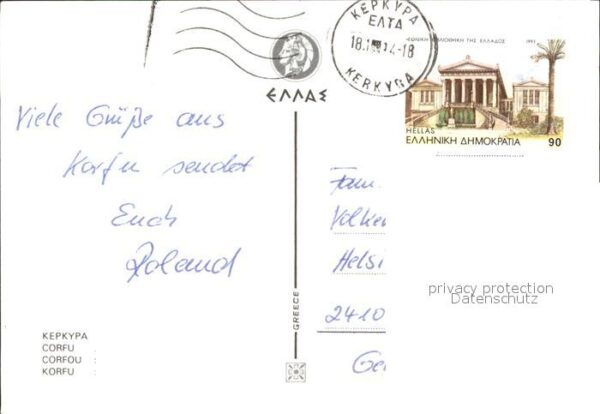 ΚΕΡΚΥΡΑ
ΕΛΤΑ
14-18
KERKYRA
ΕΘΝΙΚΗ ΒΙΒΛΙΟΘΗΚΗ ΤΗΣ ΕΛΛΑΔΟΣ 1993
HELLAS
ΕΛΛΗΝΙΚΗ ΔΗΜΟΚΡΑΤΙΑ 90
ΕΛΛΑΣ
Viele Grüße aus
Korfu sendet
Euch
Roland
Fam.
Volker
Helsi
2410
Ger
privacy protection
Datenschutz
GREECE
ΚΕΡΚΥΡΑ :
CORFU :
CORFOU :
KORFU :